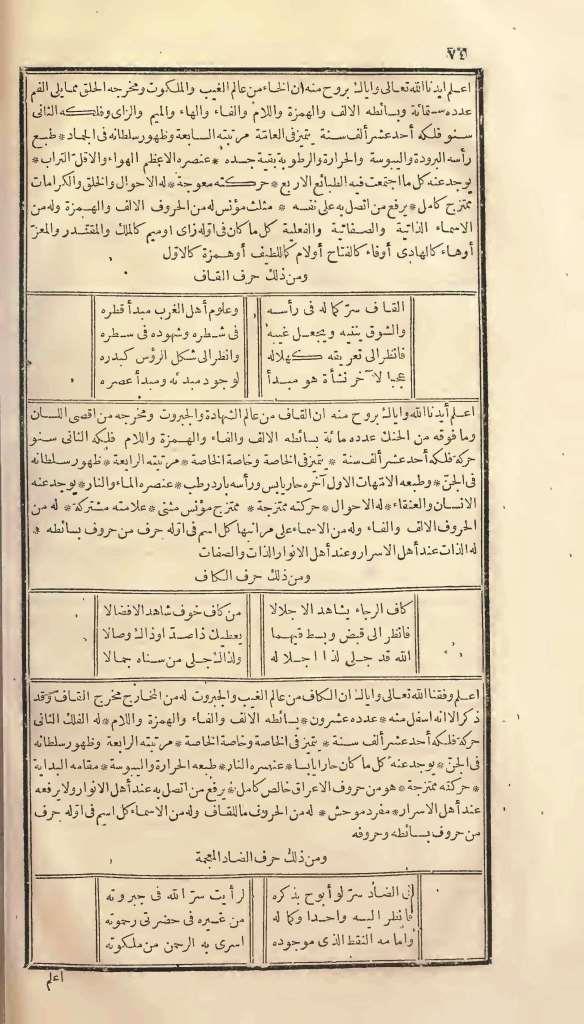 ٧٢
اعلم أيدنا الله تعالى واياك بروح منه ان الخاء من عالم الغيب والملكوت ومخرجه الحلق مما يلى الفم
عدده ستمائة وبسائطه الالف والهمزة واللام والفاء والهاء والميم والزاى وفلكه الثانى
سنو فلكه أحد عشر ألف سنة يتميز فى العامة مرتبته السابعة وظهور سلطانه فى الجماد * طبع
رأسه البرودة واليبوسة والحرارة والرطوبة بقية جسده * عنصره الاعظم الهواء والاقل التراب *
يوجد عنه كل ما اجتمعت فيه الطبائع الاربع * حركته معوجة * له الاحوال والخلق والكرامات
ممتزج كامل * يرفع من اتصل به على نفسه * مثلث مؤنس له من الحروف الالف والهمزة وله من
الاسماء الذاتية والصفاتية والفعلية كل ما كان فى اوله زاى او ميم كالملك والمقتدر والمعز
أوهاء كالهادى أوفاء كالفتاح أولام كاللطيف أوهمزة كالاول
ومن ذلك حرف القاف
القاف سر كماله فى رأسه وعلوم أهل الغرب مبدأ قطره
والشوق يثنيه ويجعل غيبه فى شطره وشهوده فى شطره
فانظر الى تعريقه كهلاله وانظر الى شكل الرؤس كبدره
عجبا لآخر نشأة هو مبدأ لوجود مبدئه ومبدأ عصره
اعلم أيدنا الله واياك بروح منه ان القاف من عالم الشهادة والجبروت ومخرجه من اقصى اللسان
وما فوقه من الحنك عدده مائة بسائطه الالف والفاء والهمزة واللام فلكه الثانى سنو
حركة فلكه أحد عشر ألف سنة * يتميز فى الخاصة وخاصة الخاصة * مرتبته الرابعة * ظهور سلطانه
فى الجن * وطبعه الامتهات الاول آخره حار يابس ورأسه بارد رطب * عنصره الماء والنار * يوجد عنه
الانسان والعنقاء * له الاحوال * حركته ممتزجة * ممتزج مؤنس مثنى * علامته مشتركة * له من
الحروف الالف والفاء وله من الاسماء على مراتبها كل اسم فى اوله حرف من حروف بسائطه *
له الذات عند أهل الاسرار وعند أهل الانوار الذات والصفات
ومن ذلك حرف الكاف
كاف الرجاء يشاهد الاجلالا من كاف خوف شاهد الافضالا
فانظر الى قبض وبسط فيهما يعطيك ذا صدا وذاك وصالا
الله قد جلى لذا اجلاله ولذاك جلى من سناه جمالا
اعلم وفقنا الله تعالى واياك ان الكاف من عالم الغيب والجبروت له من المخارج مخرج القاف وقد
ذكر الا انه اسفل منه * عدده عشرون * بسائطه الالف والفاء والهمزة واللام * له الفلك الثانى
حركة فلكه أحد عشر ألف سنة * يتميز فى الخاصة وخاصة الخاصة * مرتبته الرابعة وظهور سلطانه
فى الجن * يوجد عنه كل ما كان حارا يابسا * عنصره النار * طبعه الحرارة واليبوسة * مقامه البداية
* حركته ممتزجة * هو من حروف الاعراق خالص كامل * يرفع من اتصل به عند أهل الانوار ولا يرفعه
عند أهل الاسرار * مفرد موحش * له من الحروف ما للقاف وله من الاسماء كل اسم فى اوله حرف
من حروف بسائطه وحروفه
ومن ذلك حرف الضاد المعجمة
فى الضاد سر لو أبوح بذكره لرأيت سر الله فى جبروته
فانظر اليه واحدا وكماله من غيره فى حضرتى رحموته
وامامه اللفظ الذى موجوده اسرى به الرحمن من ملكوته
اعلم